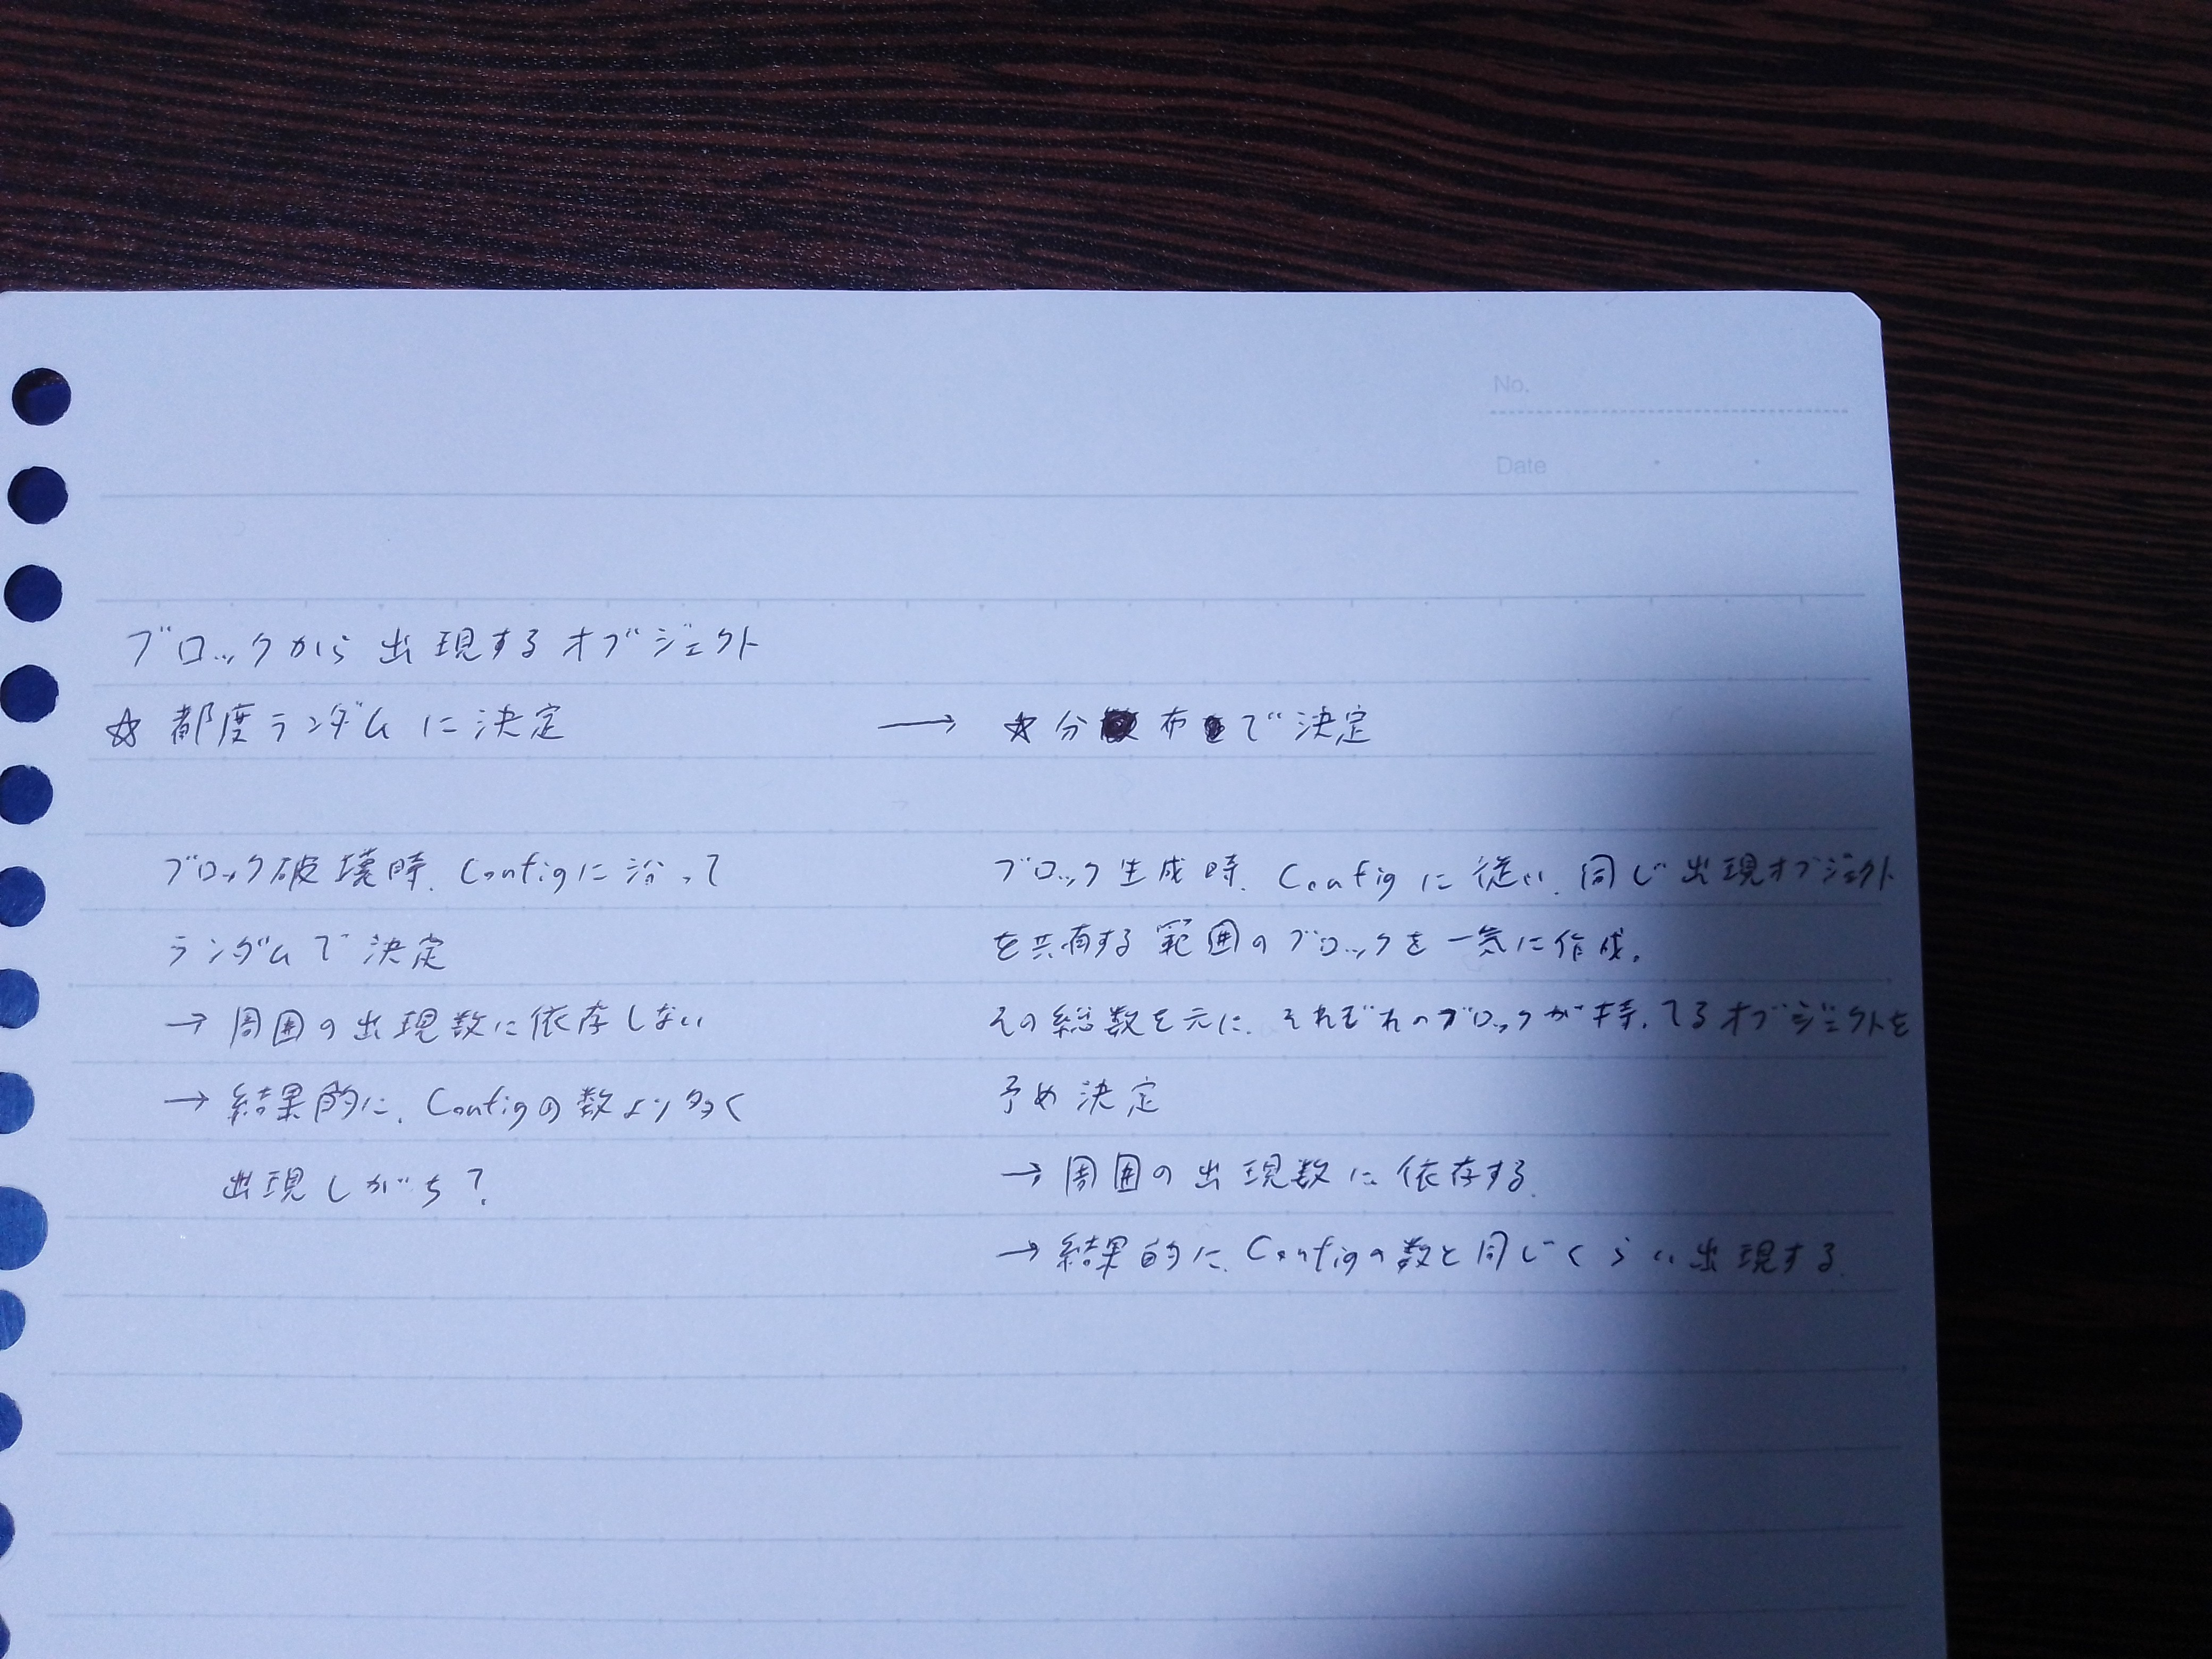 No.
Date
ブロックから出現するオブジェクト
☆ 都度ランダムに決定
→ ☆ 分布で決定
ブロック破壊時、Configに沿って
ランダムで決定
→ 周囲の出現数に依存しない
→ 結果的に、Configの数より多く
出現しがち?
ブロック生成時、Configに従い、同じ出現オブジェクト
を共有する範囲のブロックを一気に作成。
その総数を元に、それぞれのブロックが持ってるオブジェクトを
予め決定
→ 周囲の出現数に依存する。
→ 結果的に、Configの数と同じくらい出現する。